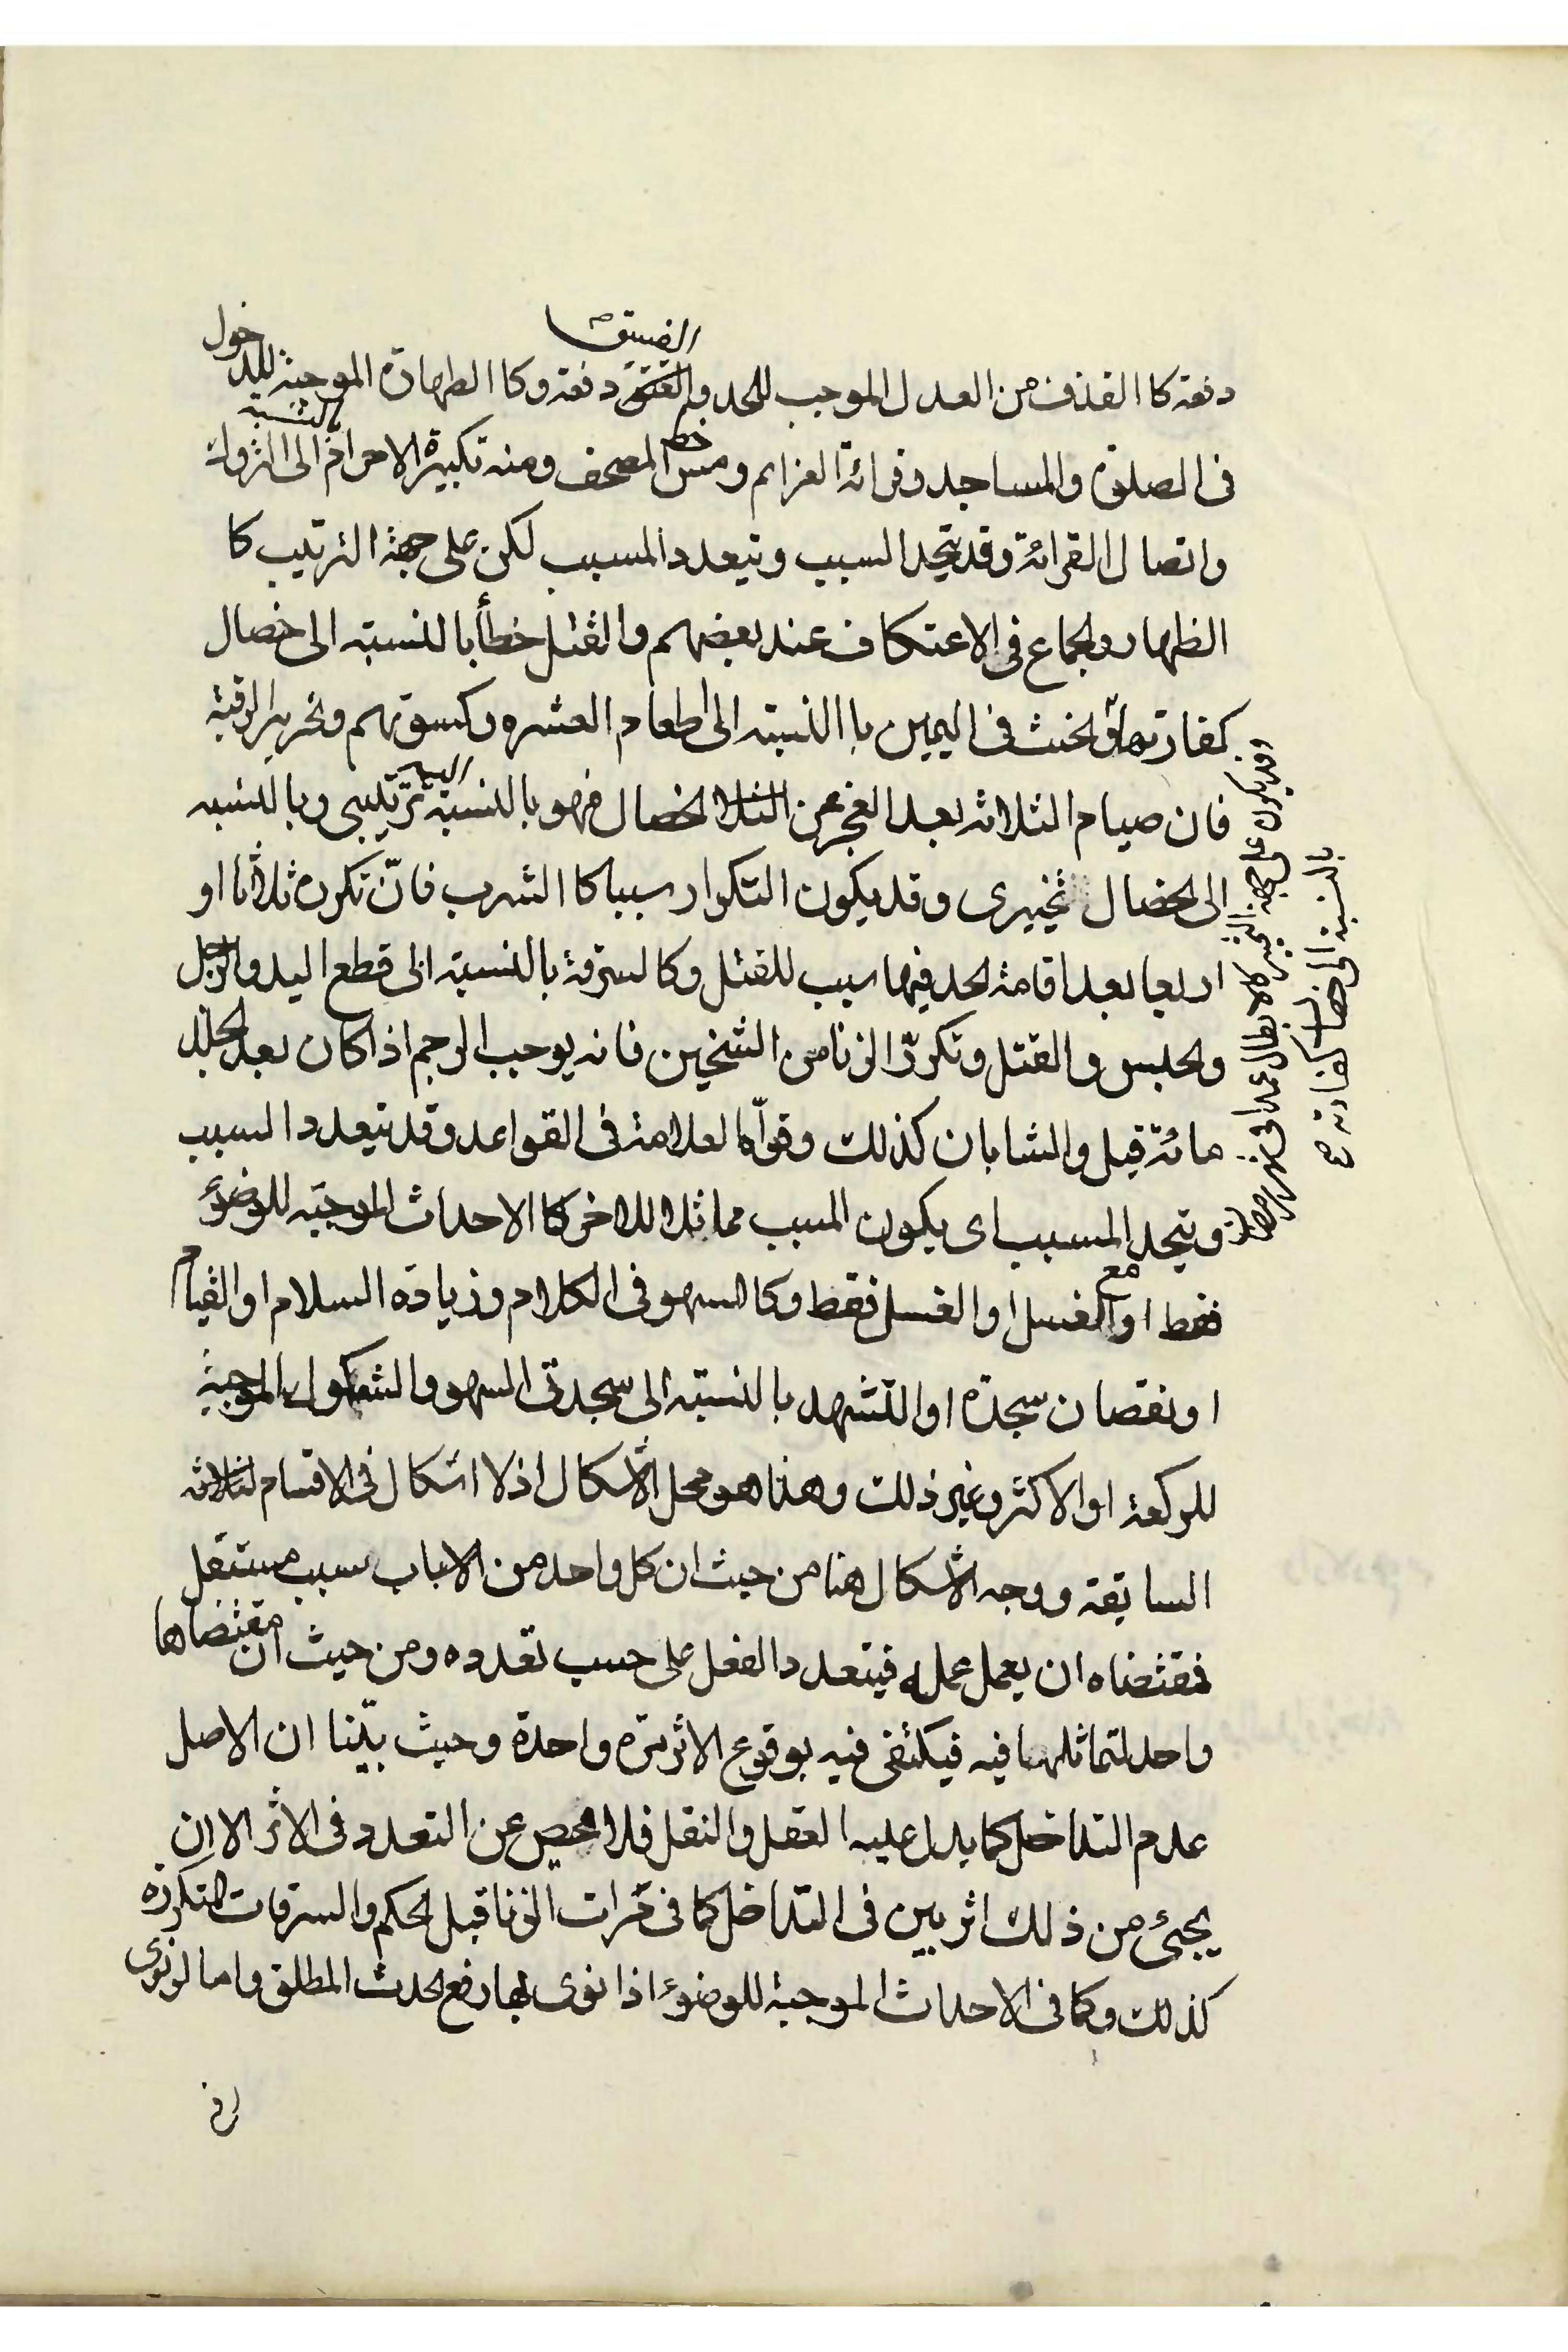 الفسق
دفعة كا القذف من العدل الموجب للحد والفسق دفعة وكا الطهارة الموجبة للدخول
فى الصلوة والمساجد وقرائة العزائم ومس خط المصحف ومنه تكبيرة الاحرام بالنسبة الى التروك
واتصال القرائة وقد يتحد السبب ويتعدد المسبب لكن على جهة الترتيب كا
الظهار والجماع فى الاعتكاف عند بعضهم والقتل خطأ بالنسبته الى خصال
كفارتها والحنث فى اليمين با النسبته الى اطعام العشره وكسوتهم وتحرير الرقبة
فان صيام الثلاثه بعد العجز عن الثلا الخصال فهو بالنسبته اليه ترتيبى وبالنسبه
الى الخصال تخييرى وقد يكون التكرار سببا كا الشرب فانّ تكرره ثلاثا او
اربعا بعد اقامة الحد فيها سبب للقتل وكالسرقة بالنسبته الى قطع اليد والرجل
والحبس والقتل وتكرّر الزنا من الشخين فانه يوجب الرجم اذا كان بعد الجلد
مائة قيل والشابان كذلك وقوّاه العلامة فى القواعد وقد يتعدد السبب
ويتحد المسبب اى يكون المسبب مماثلا للاخر كا الاحداث الموجبة للوضوء
فقط او مع الغسل او الغسل فقط وكا السهو فى الكلام وزيادة السلام او القيام
او نقصان سجدة او التشهد بالنسبته الى سجدتى السهو والشكوك الموجبة
للركعة او الاكثر وغير ذلك وهذا هو محل الاشكال اذ لا اشكال فى الاقسام الثلاثه
السابقة ووجه الاشكال هنا من حيث ان كل واحد من الاسباب سبب مستقل
فمقتضاه ان يعمل عمله فيتعدد الفعل على حسب تعدده ومن حيث ان مقتضاها
واحد لتماثلهما فيه فيكتفى فيه بوقوع الاثر مرّة واحدة وحيث بيّنا ان الاصل
عدم التداخل كما يدل عليه العقل والنقل فلا محيص عن التعدد فى الاثر الا ان
يجئ من ذلك اثر بين فى التداخل كما فى مرات الزنا قبل الحكم والسرقات المتكرره
كذلك وكما فى الاحداث الموجبة للوضوء اذا نوى بها رفع الحدث المطلق واما لو نوى
وقد يكون على جهة التخيير كالابطال عمدا فى شهر رمضان
بالنسبته الى خصال كفارته صح